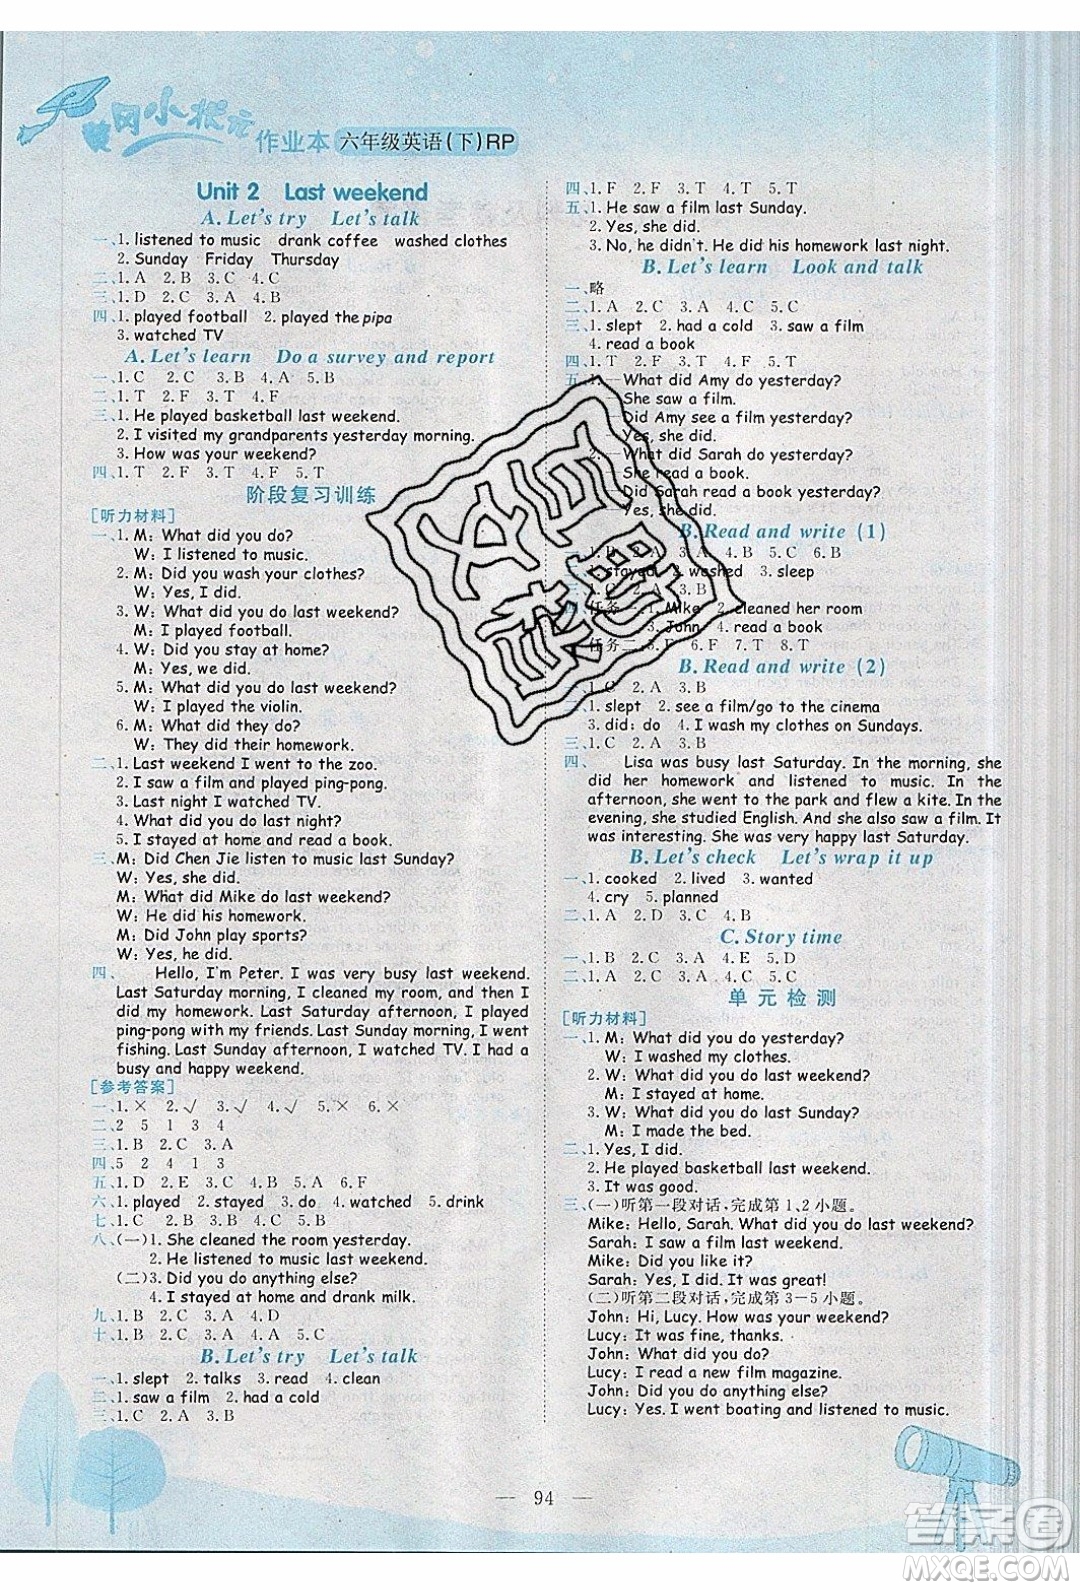 黄冈小状元
作业本 六年级英语(下)RP
Unit 2 Last weekend
A. Let's try Let's talk
一、1. listened to music drank coffee washed clothes
2. Sunday Friday Thursday
二、1. A 2. B 3. C 4. C
三、1. D 2. C 3. A 4. B
四、1. played football 2. played the pipa
3. watched TV
A. Let's learn Do a survey and report
一、1. C 2. C 3. B 4. A 5. B
二、1. B 2. C 3. A 4. A
三、1. He played basketball last weekend.
2. I visited my grandparents yesterday morning.
3. How was your weekend?
四、1. T 2. F 3. F 4. F 5. T
阶段复习训练
[听力材料]
一、1. M: What did you do?
W: I listened to music.
2. M: Did you wash your clothes?
W: Yes, I did.
3. W: What did you do last weekend?
M: I played football.
4. W: Did you stay at home?
M: Yes, we did.
5. M: What did you do last weekend?
W: I played the violin.
6. M: What did they do?
W: They did their homework.
二、1. Last weekend I went to the zoo.
2. I saw a film and played ping-pong.
3. Last night I watched TV.
4. What did you do last night?
5. I stayed at home and read a book.
三、M: Did Chen Jie listen to music last Saturday?
W: Yes, she did.
M: What did Mike do last weekend?
W: He did his homework.
M: Did John play sports?
W: Yes, he did.
四、 Hello, I'm Peter. I was very busy last weekend.
Last Saturday morning, I cleaned my room, and then I
did my homework. Last Saturday afternoon, I played
ping-pong with my friends. Last Sunday morning, I went
fishing. Last Sunday afternoon, I watched TV. I had a
busy and happy weekend.
[参考答案]
一、1. × 2. √ 3. √ 4. √ 5. × 6. ×
二、2 5 1 3 4
三、1. B 2. C 3. A
四、5 2 4 1 3
五、1. D 2. E 3. C 4. B 5. A
六、1. played 2. stayed 3. do 4. watched 5. drink
七、1. C 2. C 3. B 4. B 5. C
八、(一)1. She cleaned the room yesterday.
2. He listened to music last weekend.
(二)3. Did you do anything else?
4. I stayed at home and drank milk.
九、1. B 2. C 3. A 4. D
十、1. B 2. C 3. A 4. A 5. C
B. Let's try Let's talk
一、1. slept 2. talks 3. read 4. clean
二、1. saw a film 2. had a cold
三、1. C 2. A 3. B
四、1. F 2. F 3. T 4. T 5. T
五、1. He saw a film last Sunday.
2. Yes, she did.
3. No, he didn't. He did his homework last night.
B. Let's learn Look and talk
一、略
二、1. A 2. C 3. A 4. C 5. C
三、1. slept 2. had a cold 3. saw a film
4. read a book
四、1. T 2. F 3. F 4. T 5. T
五、1. —What did Amy do yesterday?
—She saw a film.
—Did Amy see a film yesterday?
—Yes, she did.
2. —What did Sarah do yesterday?
—She read a book.
—Did Sarah read a book yesterday?
—Yes, she did.
B. Read and write (1)
一、1. B 2. A 3. A 4. B 5. C 6. B
二、1. stayed 2. washed 3. sleep
三、1. C 2. B 3. A 4. C
四、任务一:1. Mike 2. cleaned her room
3. John 4. read a book
任务二:5. F 6. F 7. T 8. T
B. Read and write (2)
一、1. C 2. A 3. B
二、1. slept 2. see a film/go to the cinema
3. did; do 4. I wash my clothes on Sundays.
三、1. C 2. A 3. B
四、 Lisa was busy last Saturday. In the morning, she
did her homework and listened to music. In the
afternoon, she went to the park and flew a kite. In the
evening, she studied English. And she also saw a film. It
was interesting. She was very happy last Saturday.
B. Let's check Let's wrap it up
一、1. cooked 2. lived 3. wanted
4. cry 5. planned
二、1. A 2. D 3. C 4. B
C. Story time
一、1. B 2. C 3. A 4. E 5. D
二、1. A 2. C 3. A 4. C 5. C
单元检测
[听力材料]
一、1. M: What did you do yesterday?
W: I washed my clothes.
2. W: What did you do yesterday?
M: I stayed at home.
3. W: What did you do last Sunday?
M: I made the bed.
二、1. Yes, I did.
2. He played basketball last weekend.
3. It was good.
三、(一)听第一段对话,完成第1、2小题。
Mike: Hello, Sarah. What did you do last weekend?
Sarah: I saw a film.
Mike: Did you like it?
Sarah: Yes, I did. It was great!
(二)听第二段对话,完成第3—5小题。
John: Hi, Lucy. How was your weekend?
Lucy: It was fine, thanks.
John: What did you do?
Lucy: I read a new film magazine.
John: Did you do anything else?
Lucy: Yes. I went boating and listened to music.
— 94 —
答案圈
MXQE.COM